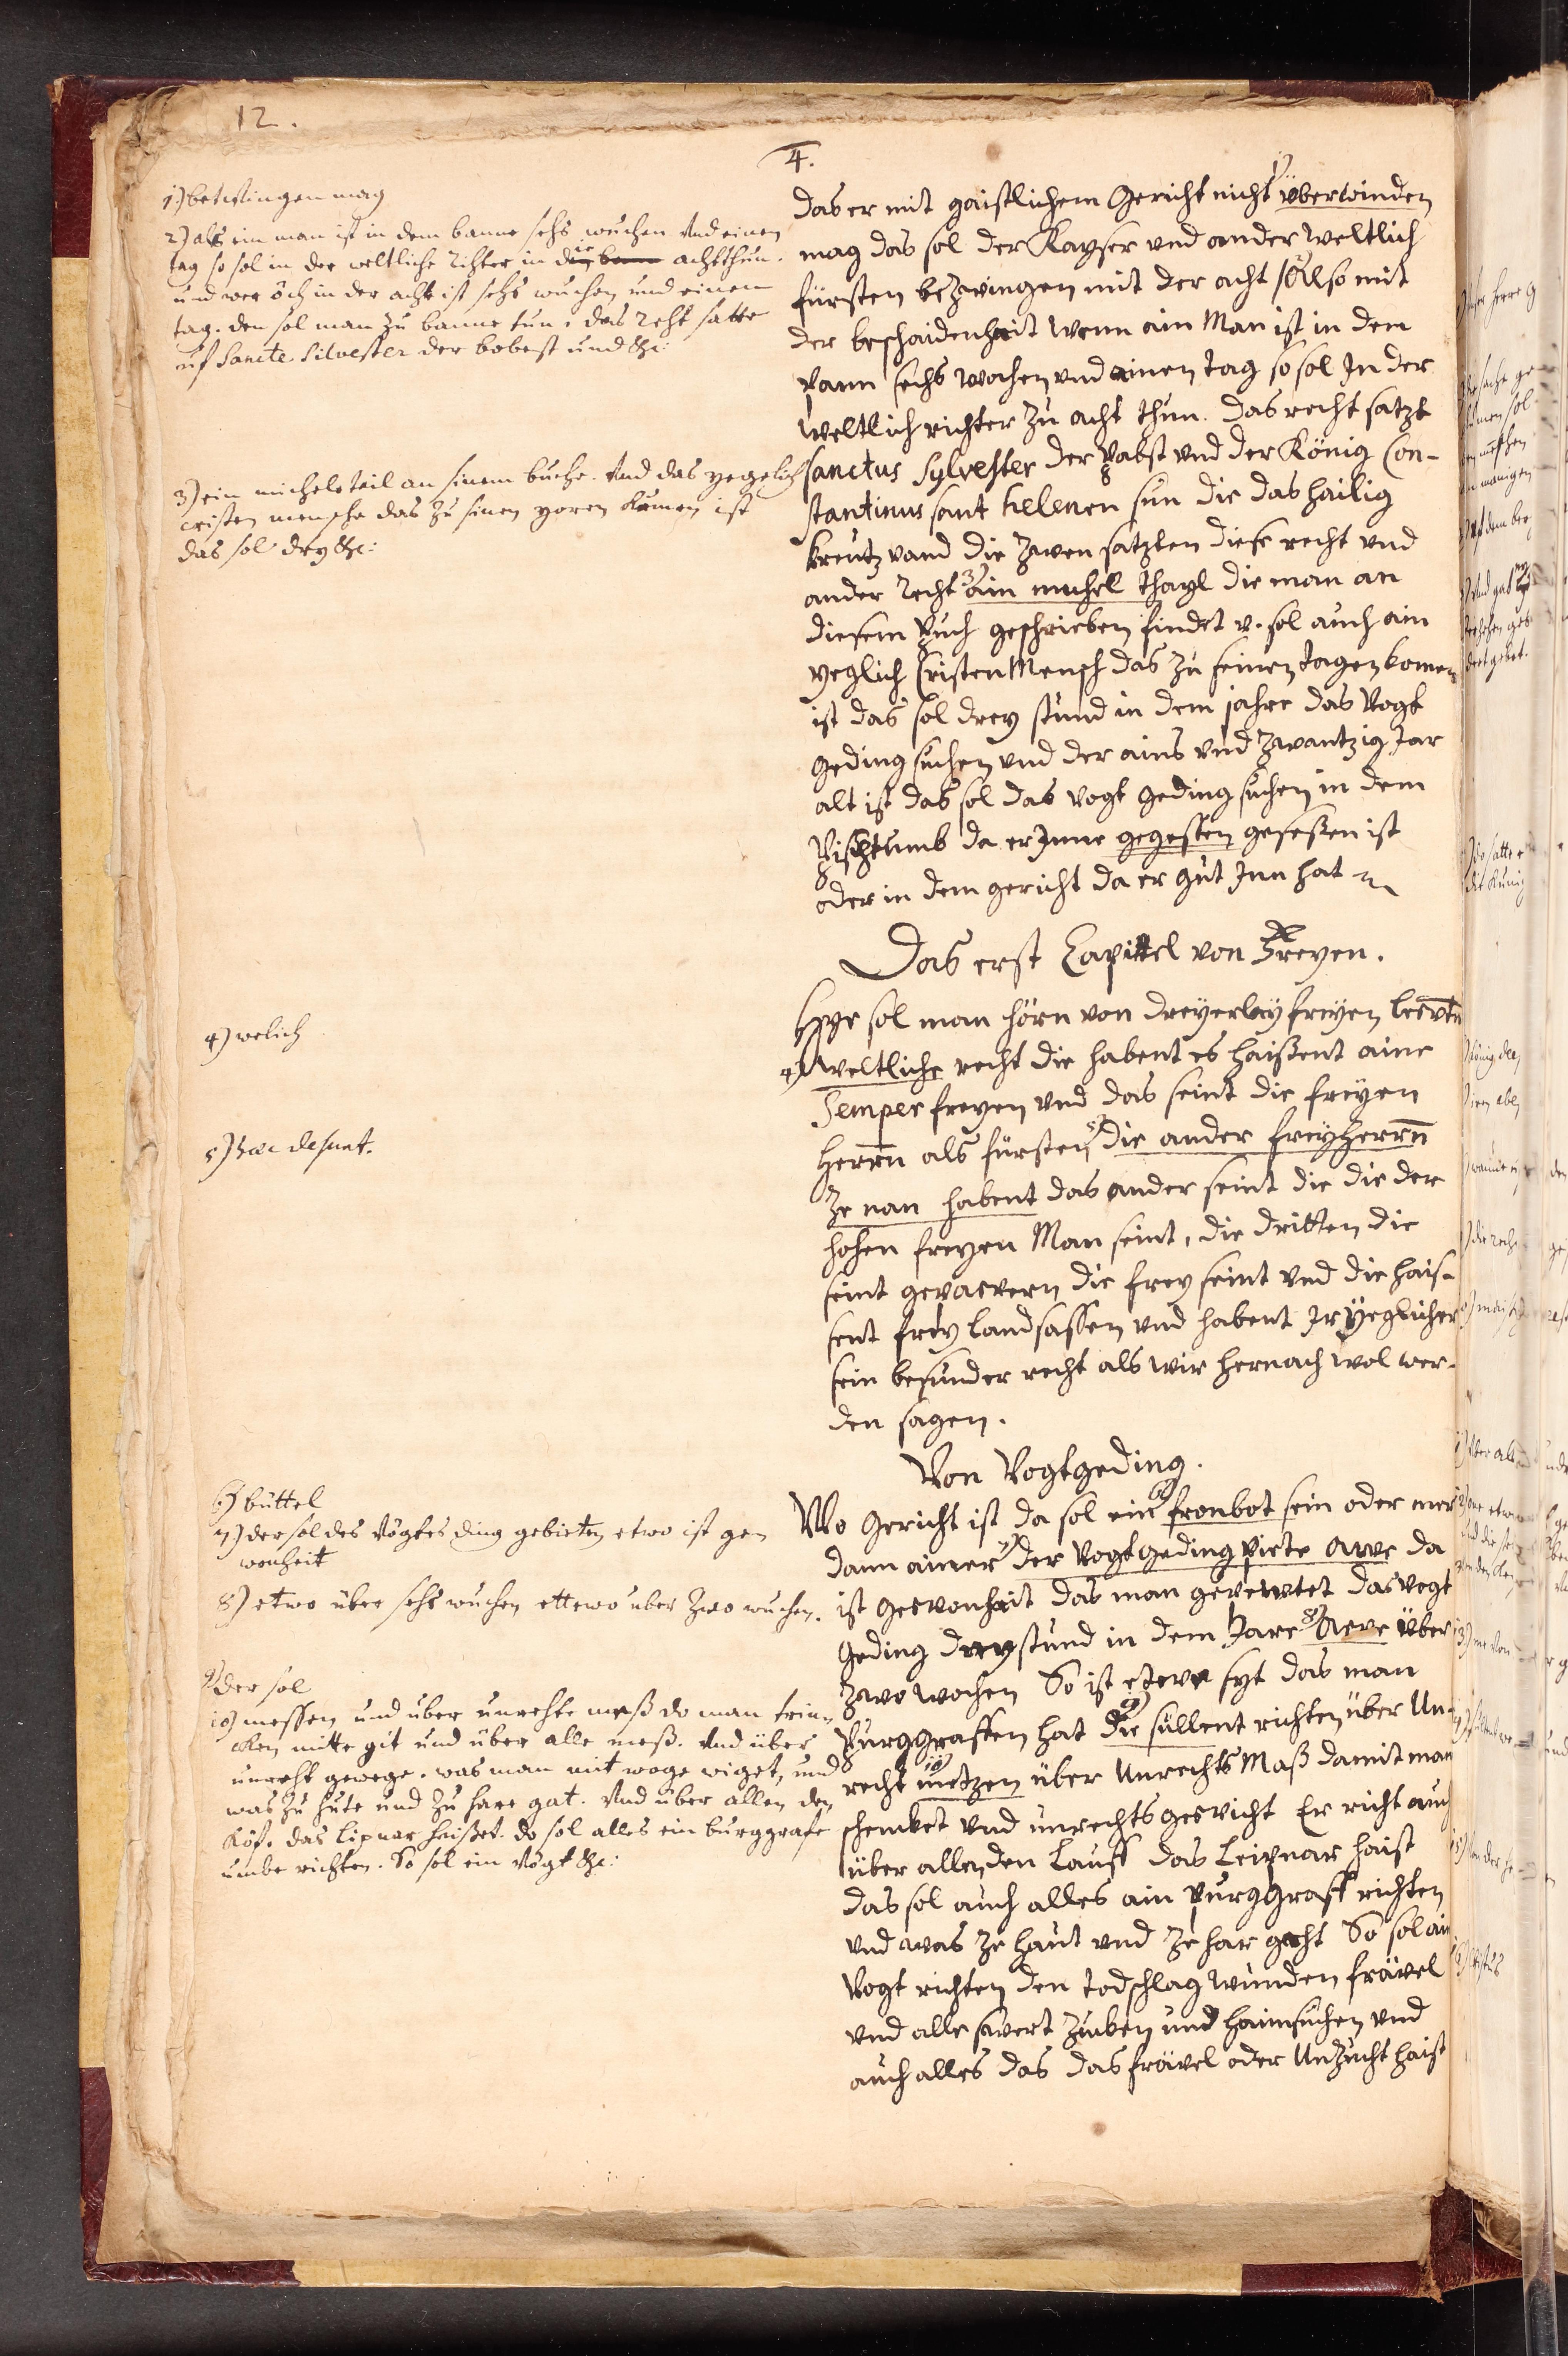 12.
4.
1) betwingen mag
2) als ein man ist in dem banne sehs wuchen und einen
tag so sol in der weltliche richter in die achtthun.
und wer och in der acht ist sehs wuchen und einen
tag. den sol man zu banne tun. das reht satte
uf Sancte Silvester der bobest und &c:
3) ein michels teil an sinem buche. Und das yegelich
cristen mensche das zu sinen yoren kumen ist
das sol dry &c:
4) welich
5) haec desunt.
6) büttel
7) der sol des Vogtes ding gebieten etwo ist gen
wonheit
8) etwo über sehs wuchen ettewo uber zwo wuchen.
9) der sol
10) messen und uber unrehte meß do man trin-
cken mitte git und über alle meß. Und über
unreht gewege. was man mit woge wiget, und
was zu hute und zu hare gat. Und über allen den
Köf. das lipnar haißet. do sol alles ein burggrafe
umbe richten. So sol ein Vogt &c:
das er mit gaistlichem Gericht nicht 1) überwinden
mag das sol der Kayser und ander weltlich
fürsten bezwingen mit der acht 2) Also mit
der beschaidenhait wenn ain Man ist in dem
pann sechs wochen und ainen tag so sol In der
weltlich richter zu acht thun. Das recht satzt
sanctus Sylvester der Pabst und der König Con-
stantinus sant helenen sun die das hailig
kreutz vand die zwen satzten diese recht und
ander recht 3) ain michel thayl die man an
diesem Puch geschrieben findet v. sol auch ain
yeglich Cristen Mensch das zu seinen tagen komen
ist das sol drey stund in dem jahre das Vogt
geding suchen und der ains und zwantzig Jar
alt ist das sol das Vogt geding suchen in dem
Pischtumb da er Inne gegessen gesessen ist
oder in dem gericht da er gut Inn hat
Das erst Capittel von Freyen.
Hye sol man hörn von dreyerley freyen
4) Weltliche recht die habent es haissent aine
Semper freyen und das seint die freyen
Herrn als fürsten 5) die ander freyherrn
ze nan habent das ander seint die die der
hohen freyen Man seint, die dritten die
seint gepaevern die frey seint und die hais-
sent frey landsassen und habent Ir yeglicher
sein besunder recht als wir hernach wol wer-
den sagen.
Von Vogtgeding.
Wo Gericht ist da sol ein 6) fronbot sein oder mer
dann ainer 7) der Vogtgeding piete awe da
ist Gewonhait das man das vogt
geding drey stund in dem Jare 8) Aewe über
zwo wochen So ist etewa syt das man
Purggraffen hat 9) die süllent richten über Un-
recht 10) metzen über Unrechts Maß damit man
schenket und unrechts gewicht Er richt auch
über allen den kauff das Leipnar haist
das sol auch alles ain purggraff richten
und was ze haut und ze har gecht So sol ain
Vogt richten den todschlag wunden frävel
und alle swert zucken und haimsuchen und
auch alles das das frävel oder Unzucht haist